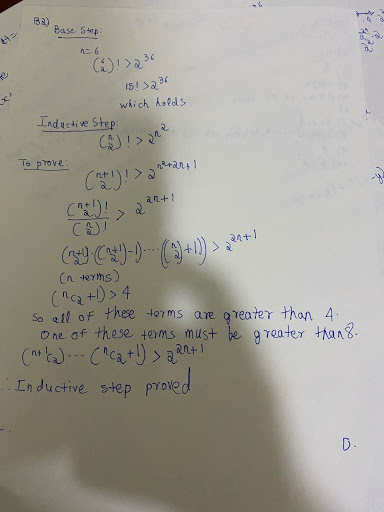 B2)
Base Step:
n=6
(6 2)! > 2^36
15! > 2^36
which holds
Inductive Step:
(n 2)! > 2^n^2
To prove:
(n+1 2)! > 2^n^2+2n+1
(n+1 2)! / (n 2)! > 2^2n+1
(n+1 2)·((n+1 2)-1)····((n 2)+1)) > 2^2n+1
(n terms)
(nC2+1) > 4
So all of these terms are greater than 4.
One of these terms must be greater than 8.
(n+1C2)----(nC2+1) > 2^2n+1
∴ Inductive step proved
D.